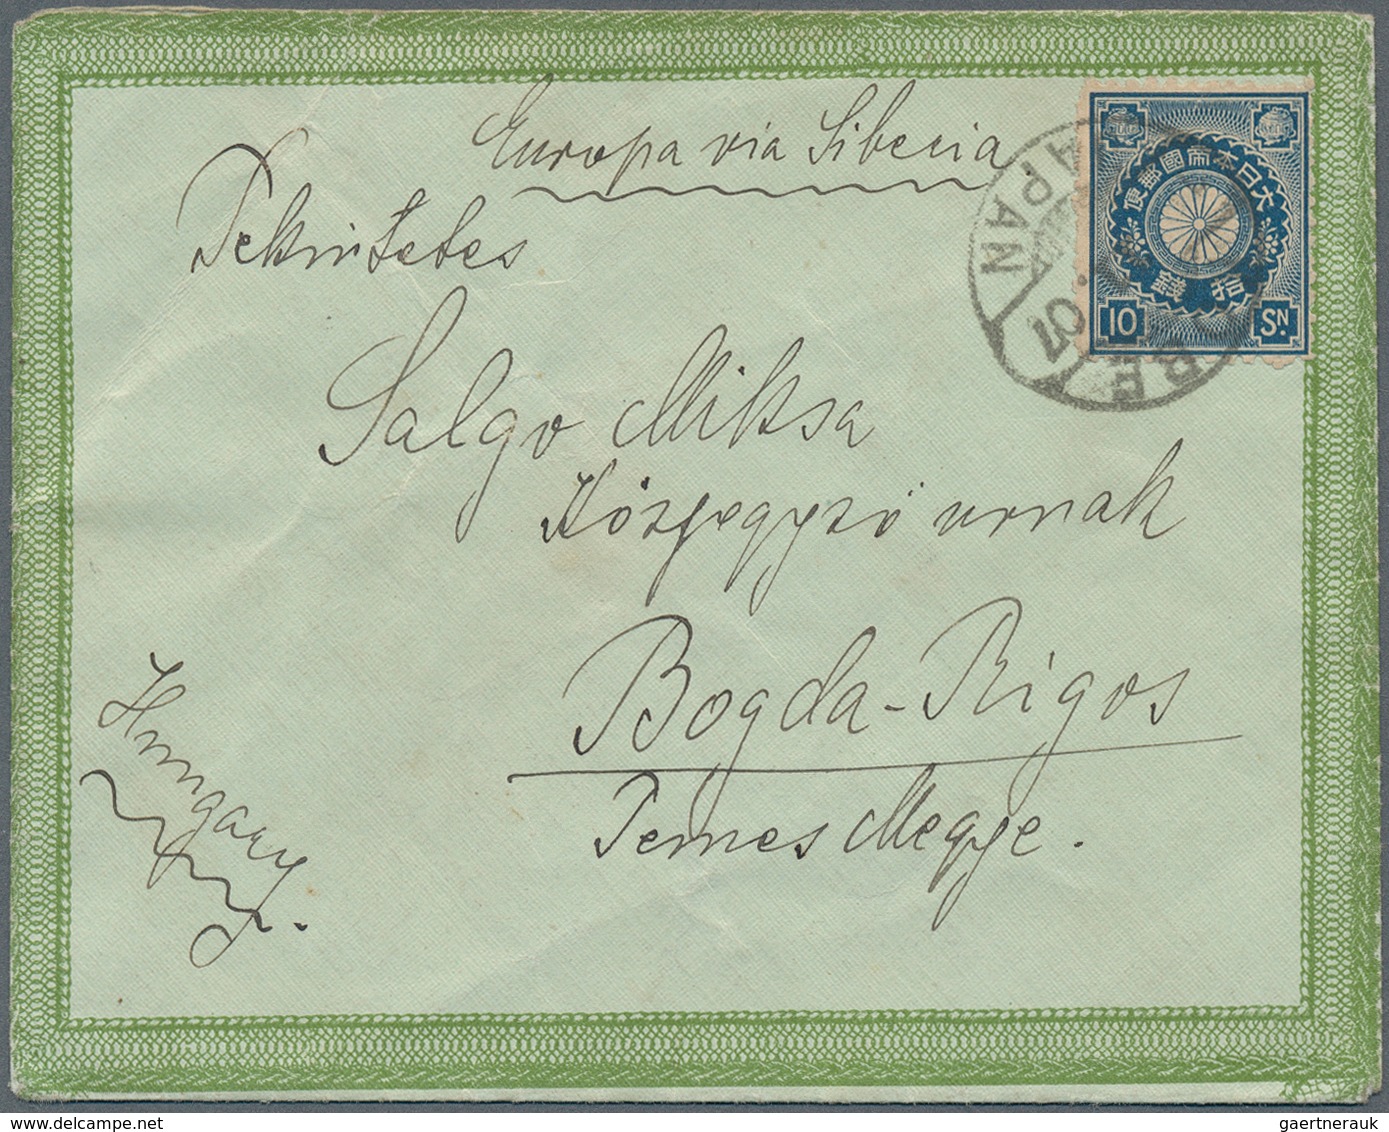 Europa via Siberia.
Tekintetes
Salgo Miksa
Közjegyző urnak
Bogda-Rigos
Temes Megye.
Hungary.
大日本帝國郵便
拾錢
10 SN.
JAPAN
07
gaertnerauk
www.delcampe.net